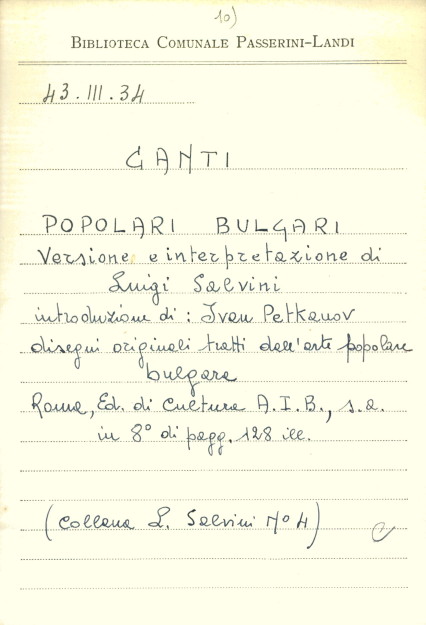 10)
BIBLIOTECA COMUNALE PASSERINI-LANDI
43.III.34
CANTI
POPOLARI BULGARI
Versione e interpretazione di
Luigi Salvini
introduzione di: Ivan Petkanov
disegni originali tratti dall'arte popolare
bulgara
Roma, Ed. di Cultura A.I.B., s.a.
in 8° di pagg. 128 ill.
(Collana L. Salvini N° 4)